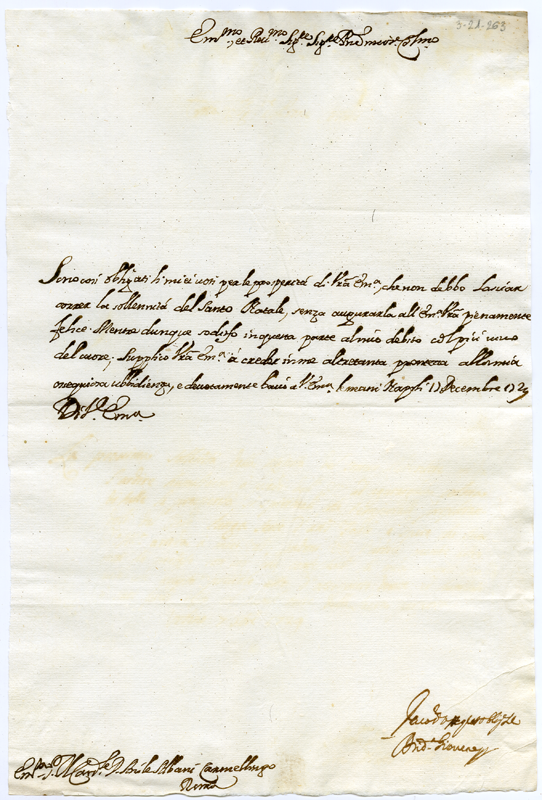 3-21-263
Em.mo et Reu.mo Sig.re Sig.re Pñe mio Col.mo
Sono così obligati li miei voti per le prosperità di V̄ra Em.a, che non debbo lasciar
correr la sollennità del Santo Natale, senza augurarla all'Em.a V̄ra pienamente
felice. Mentre dunque sodisfo in questa parte al mio debito col più vivo
del cuore, supplico V̄ra Em.a à creder in me altretanta prontezza all'
ossequiosa ubbidienza, e devotamente bacio à V. Em.a le mani Napoli Decembre
Di V.a Em.a
Em.o S.r Card.le Albani Camerlingo
Roma